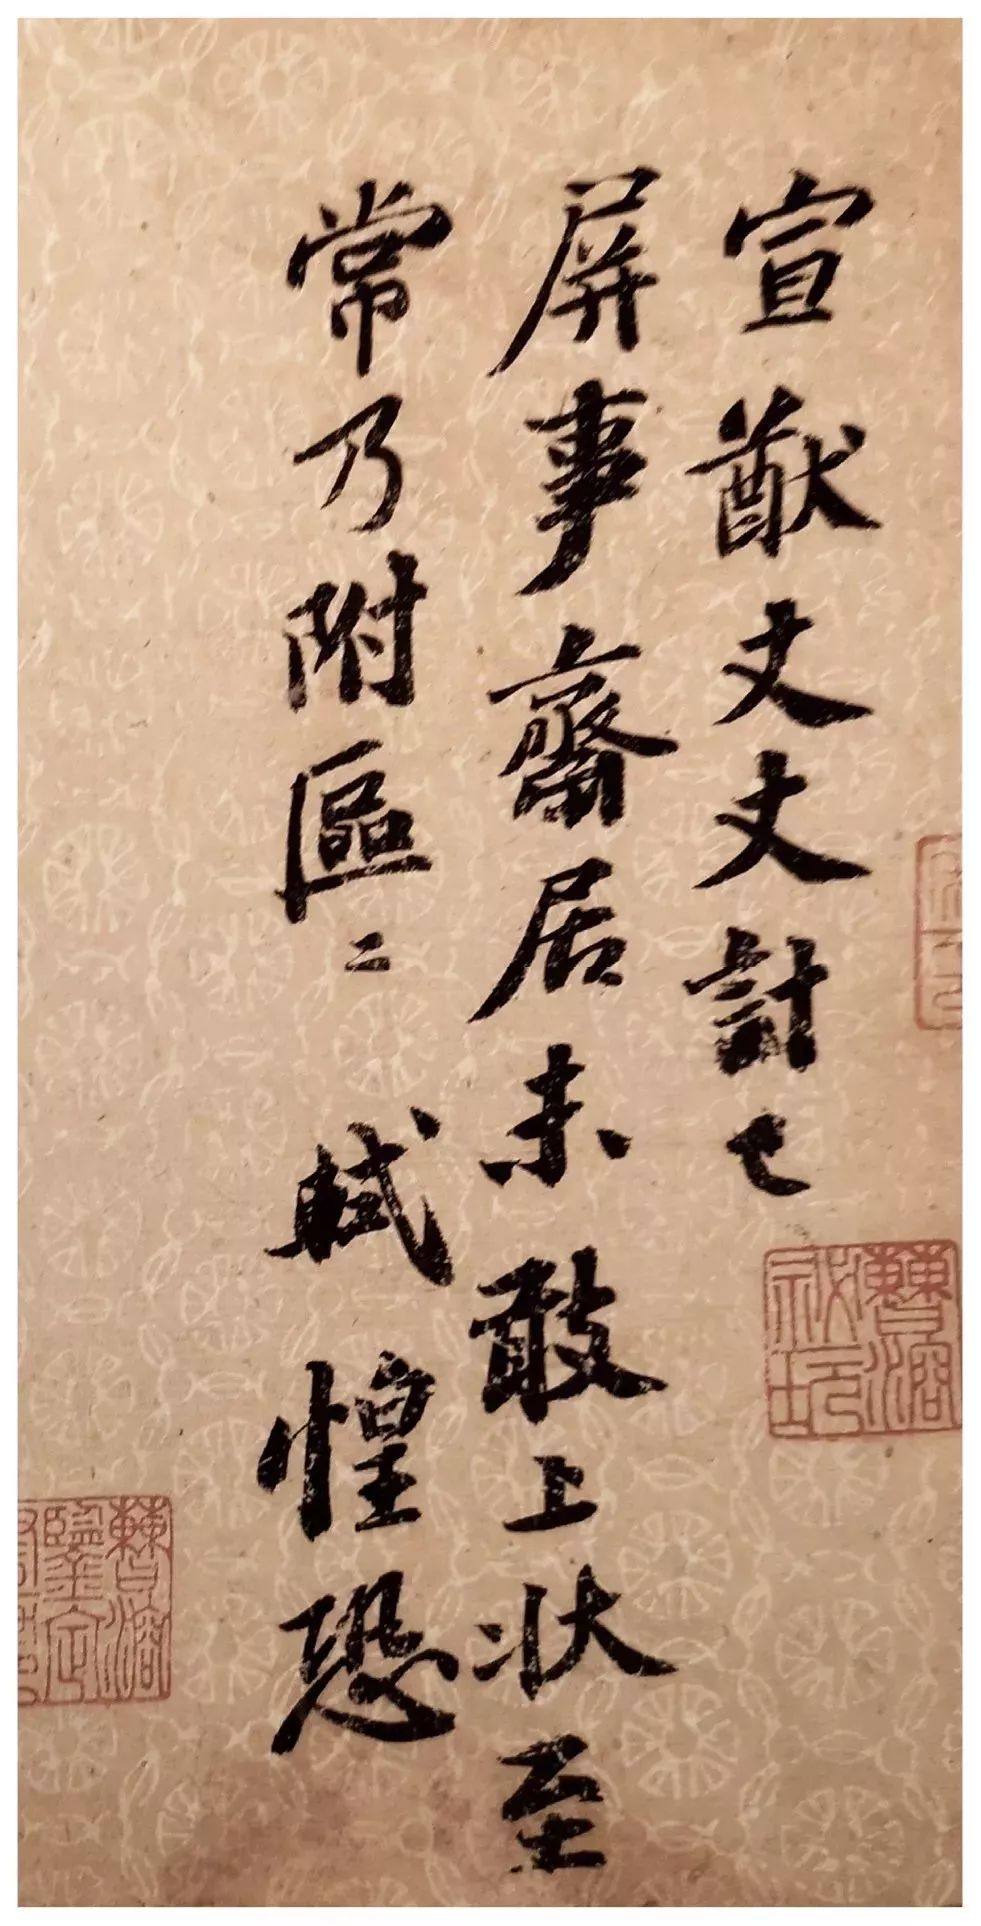 宣猷丈丈計已
屏事齋居未敢上状至
常乃附區二 軾惶恐